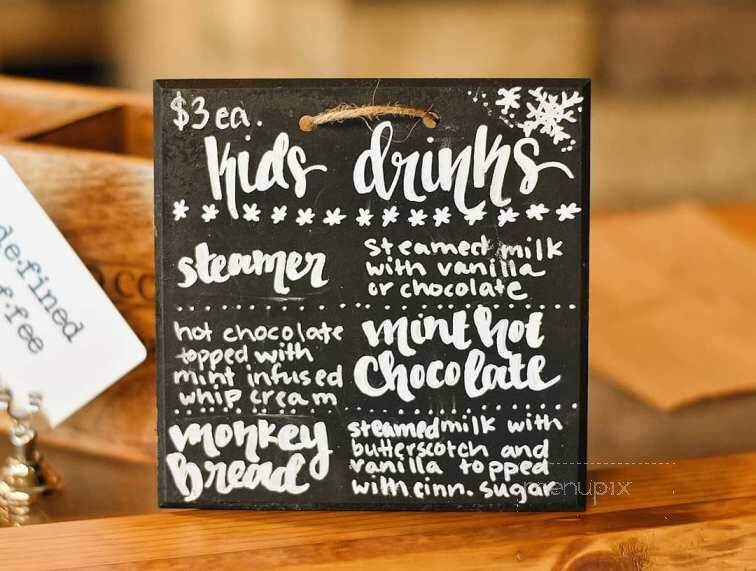 $3 ea.
kids drinks
steamer
steamed milk
with vanilla
or chocolate
hot chocolate
topped with
mint infused
whip cream
mint hot
chocolate
monkey
bread
steamed milk with
butterscotch and
vanilla topped
with cinn. sugar
de.fined
cof.fee
menupix